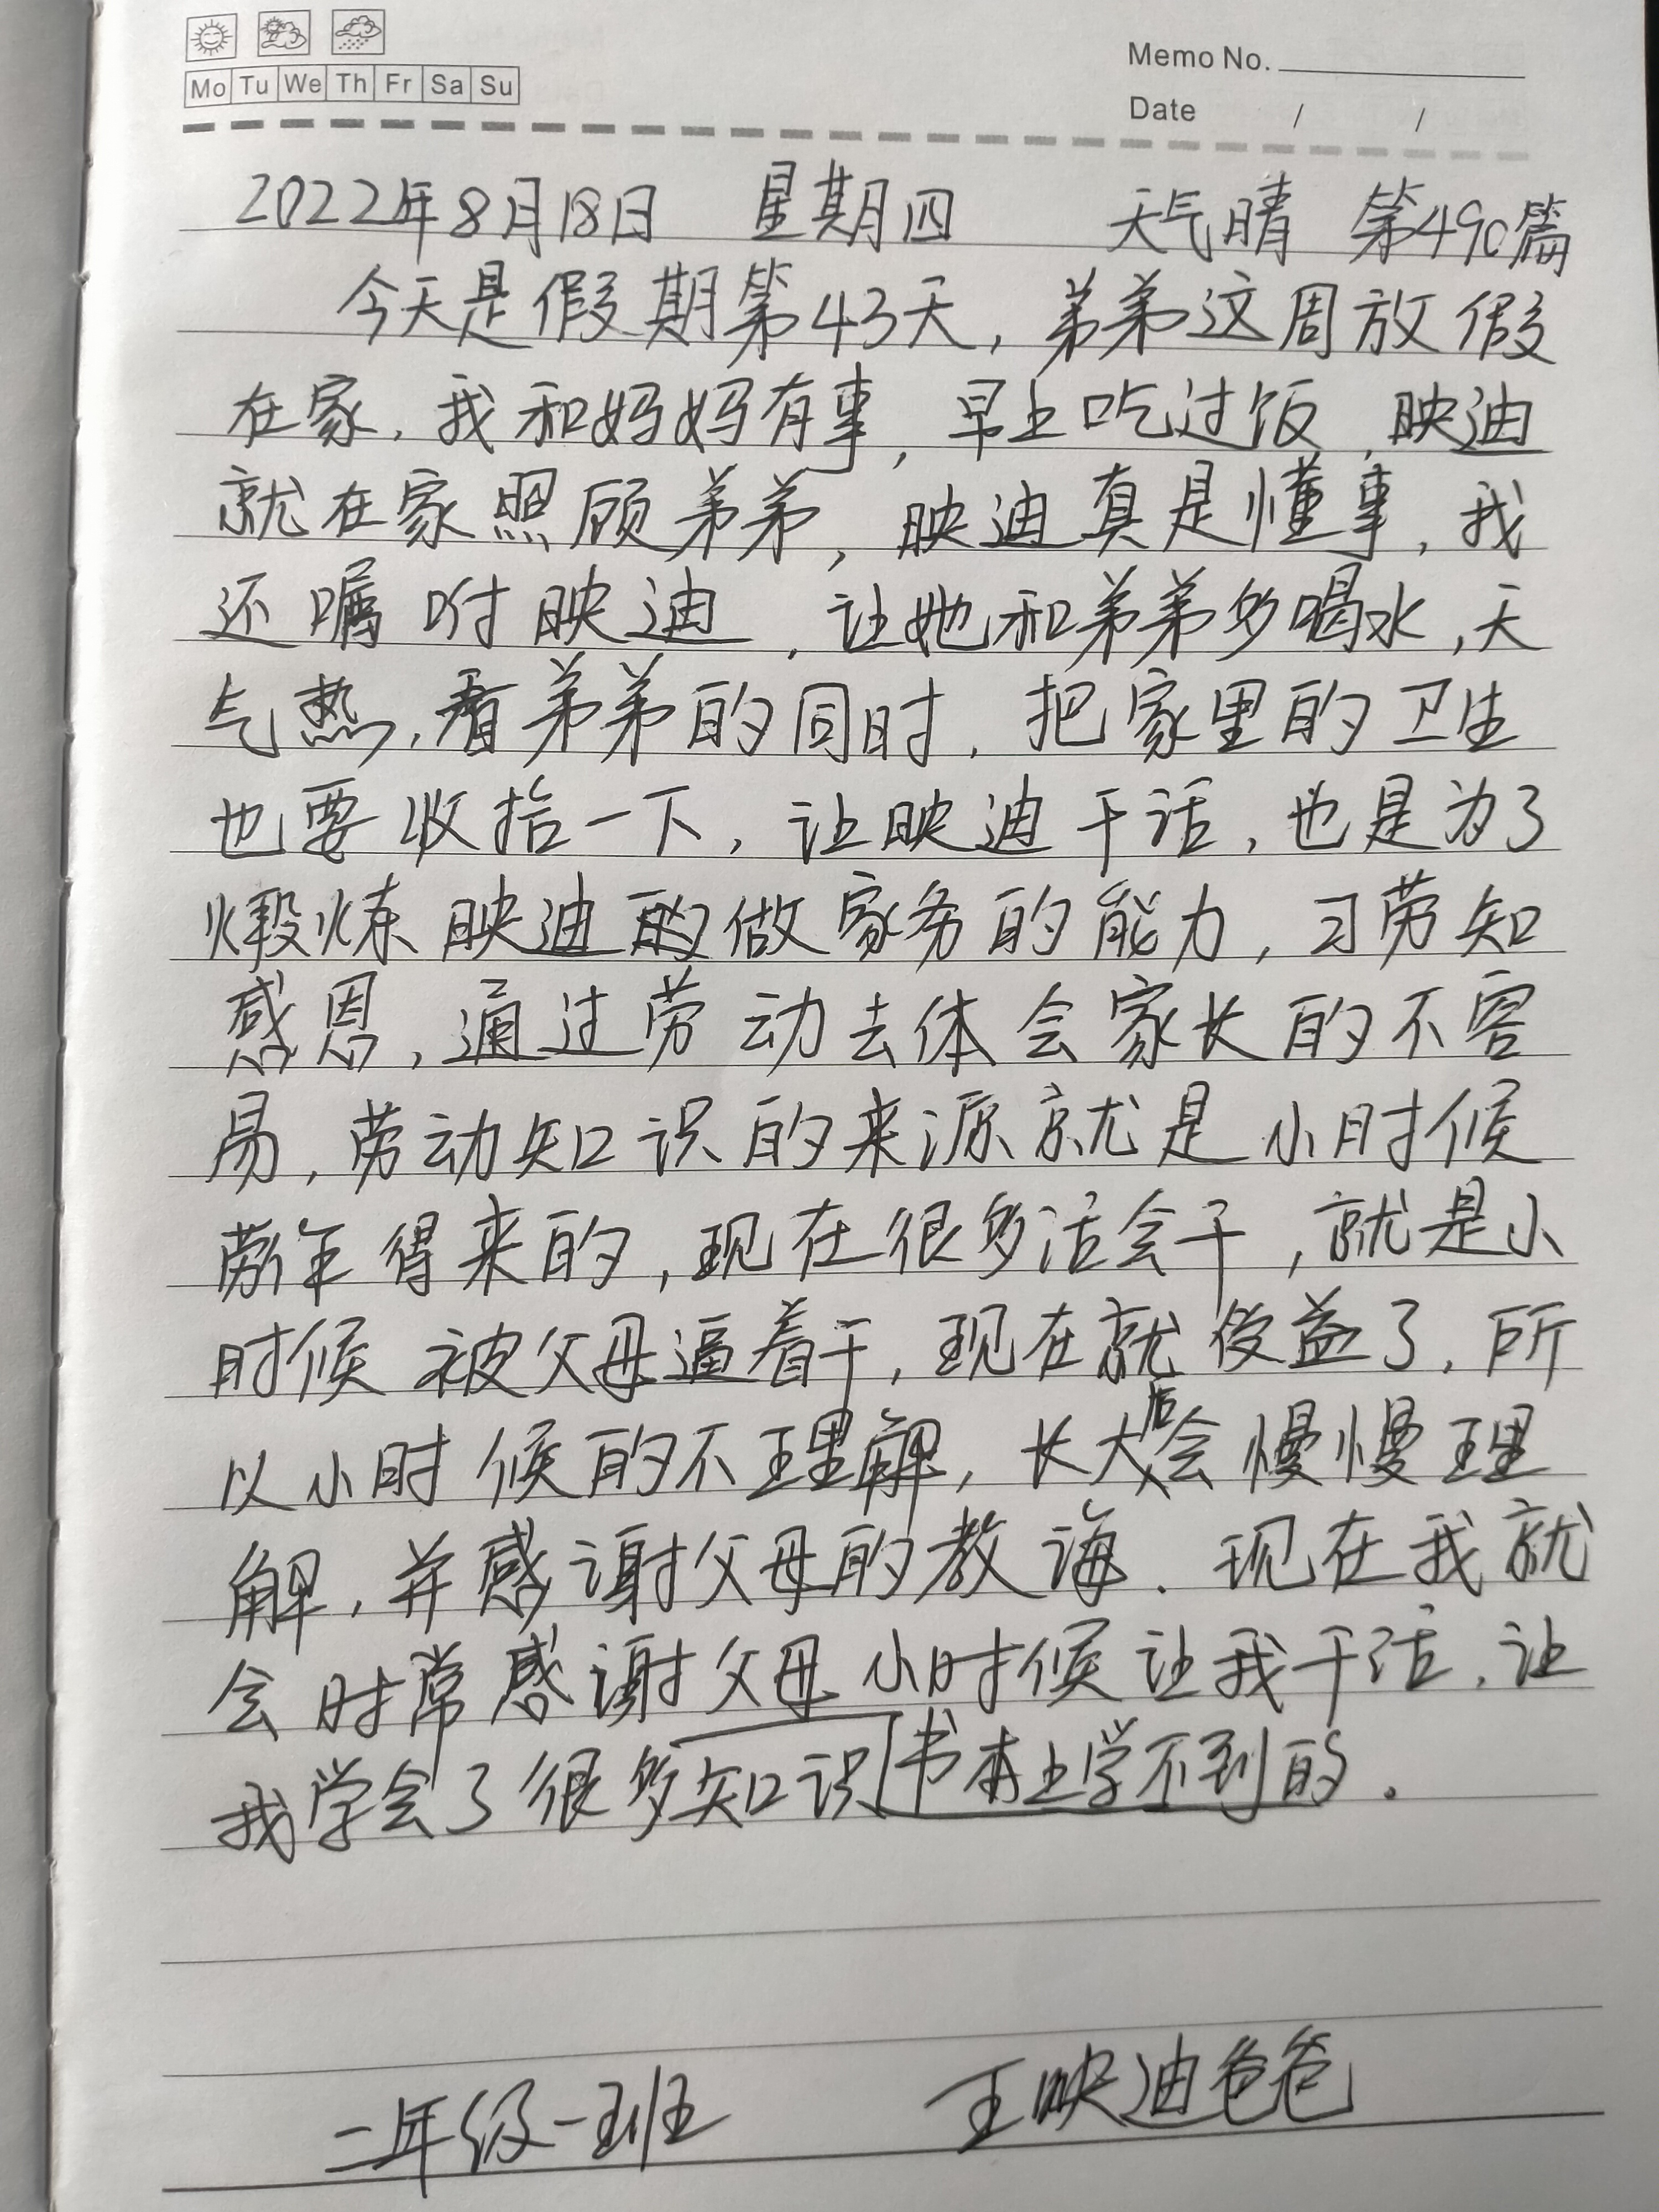 Mo Tu We Th Fr Sa Su
Memo No.
Date / /
2022年8月18日 星期四 天气晴 第490篇
今天是假期第43天，弟弟这周放假
在家，我和妈妈有事，早上吃过饭，映迪
就在家照顾弟弟，映迪真是懂事，我
还嘱咐映迪，让她和弟弟多喝水，天
气热，看弟弟的同时，把家里的卫生
也要收拾一下，让映迪干活，也是为了
煅炼映迪的做家务的能力，习劳知
感恩，通过劳动去体会家长的不容
易，劳动知识的来源就是小时候
劳作得来的，现在很多活会干，就是小
时候被父母逼着干，现在就受益了，所
以小时候的不理解，长大后会慢慢理
解，并感谢父母的教诲．现在我就
会时常感谢父母小时候让我干活，让
我学会了很多知识书本上学不到的．
二年级一班 王映迪爸爸